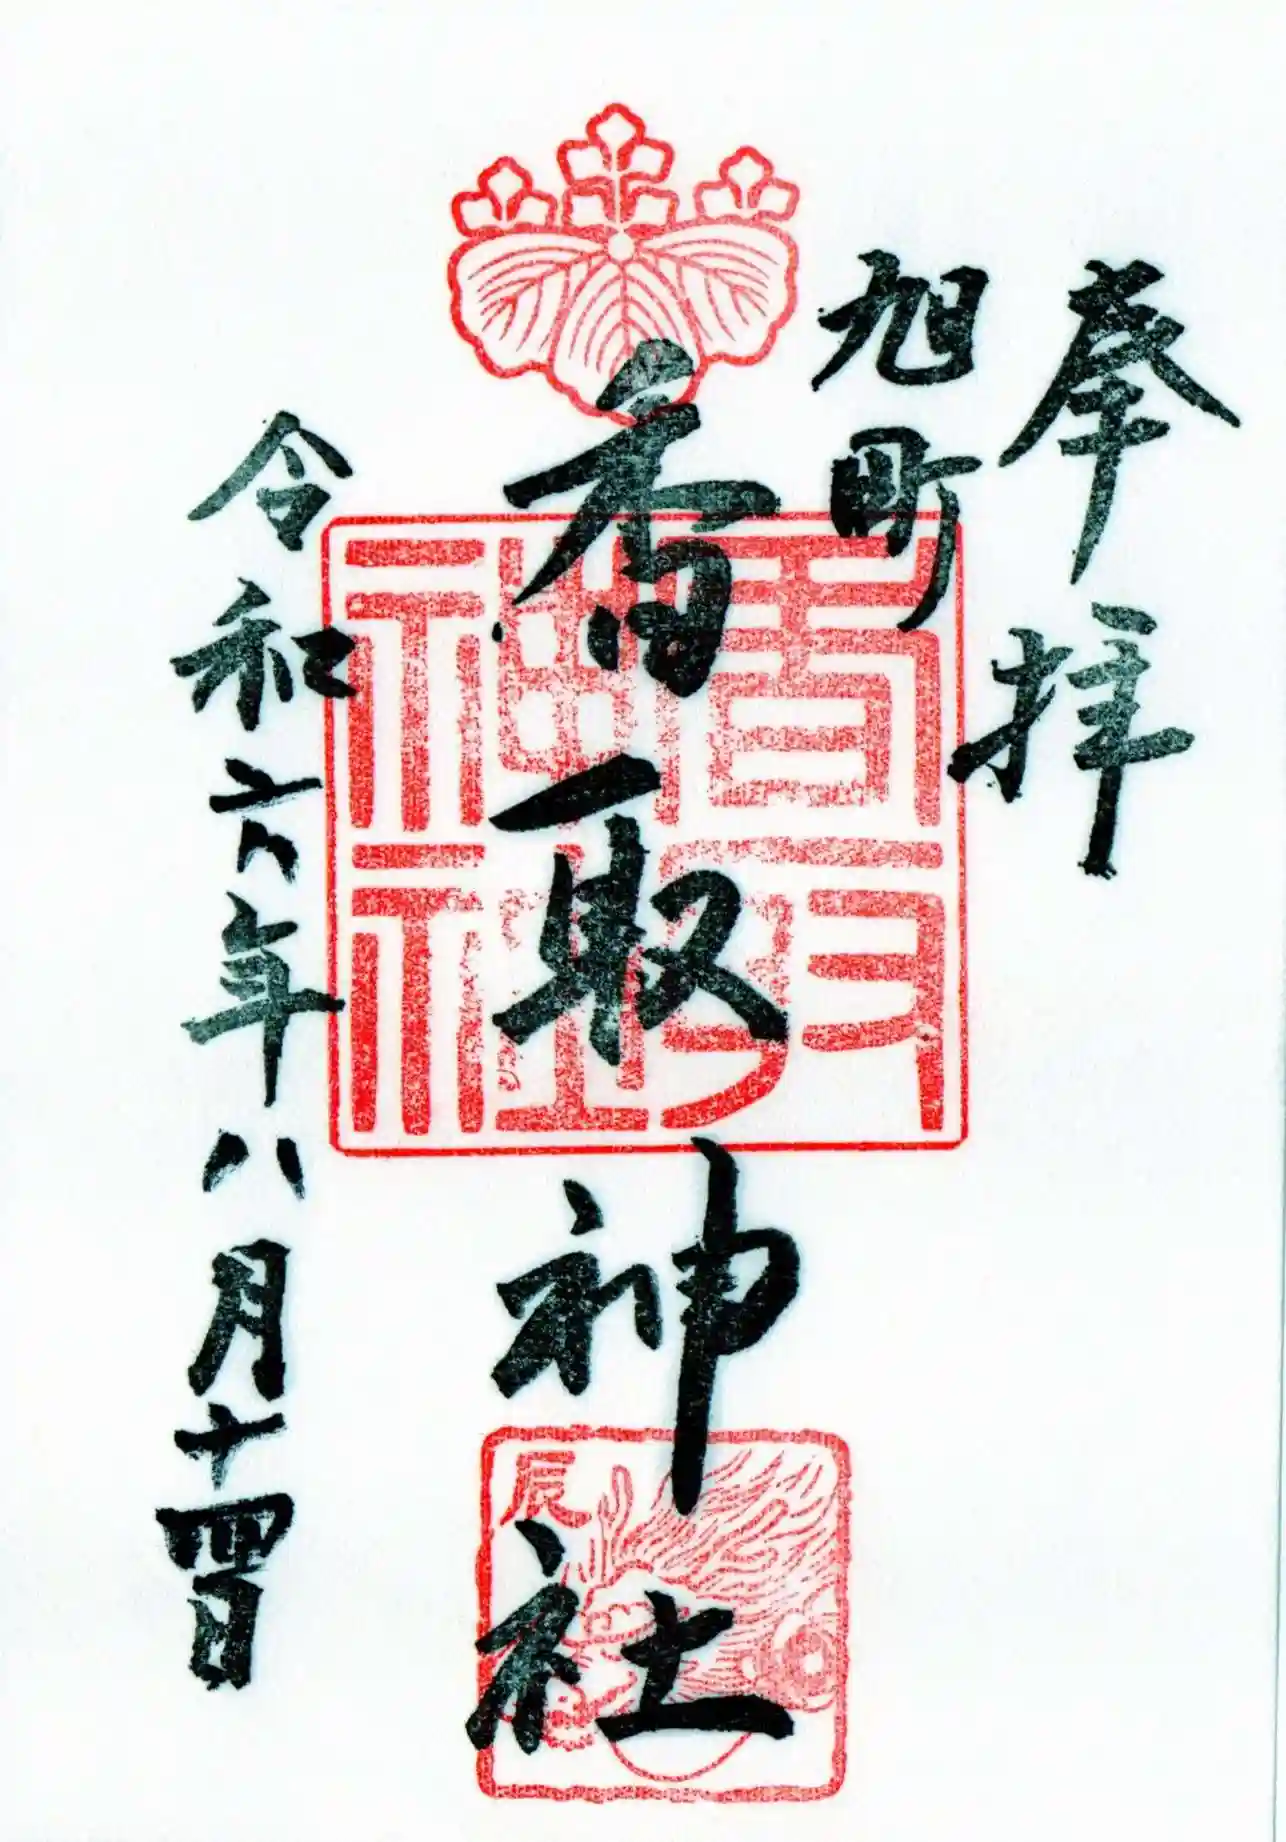 奉拝
旭町
香取神社
令和六年八月十四日
香取神社
辰